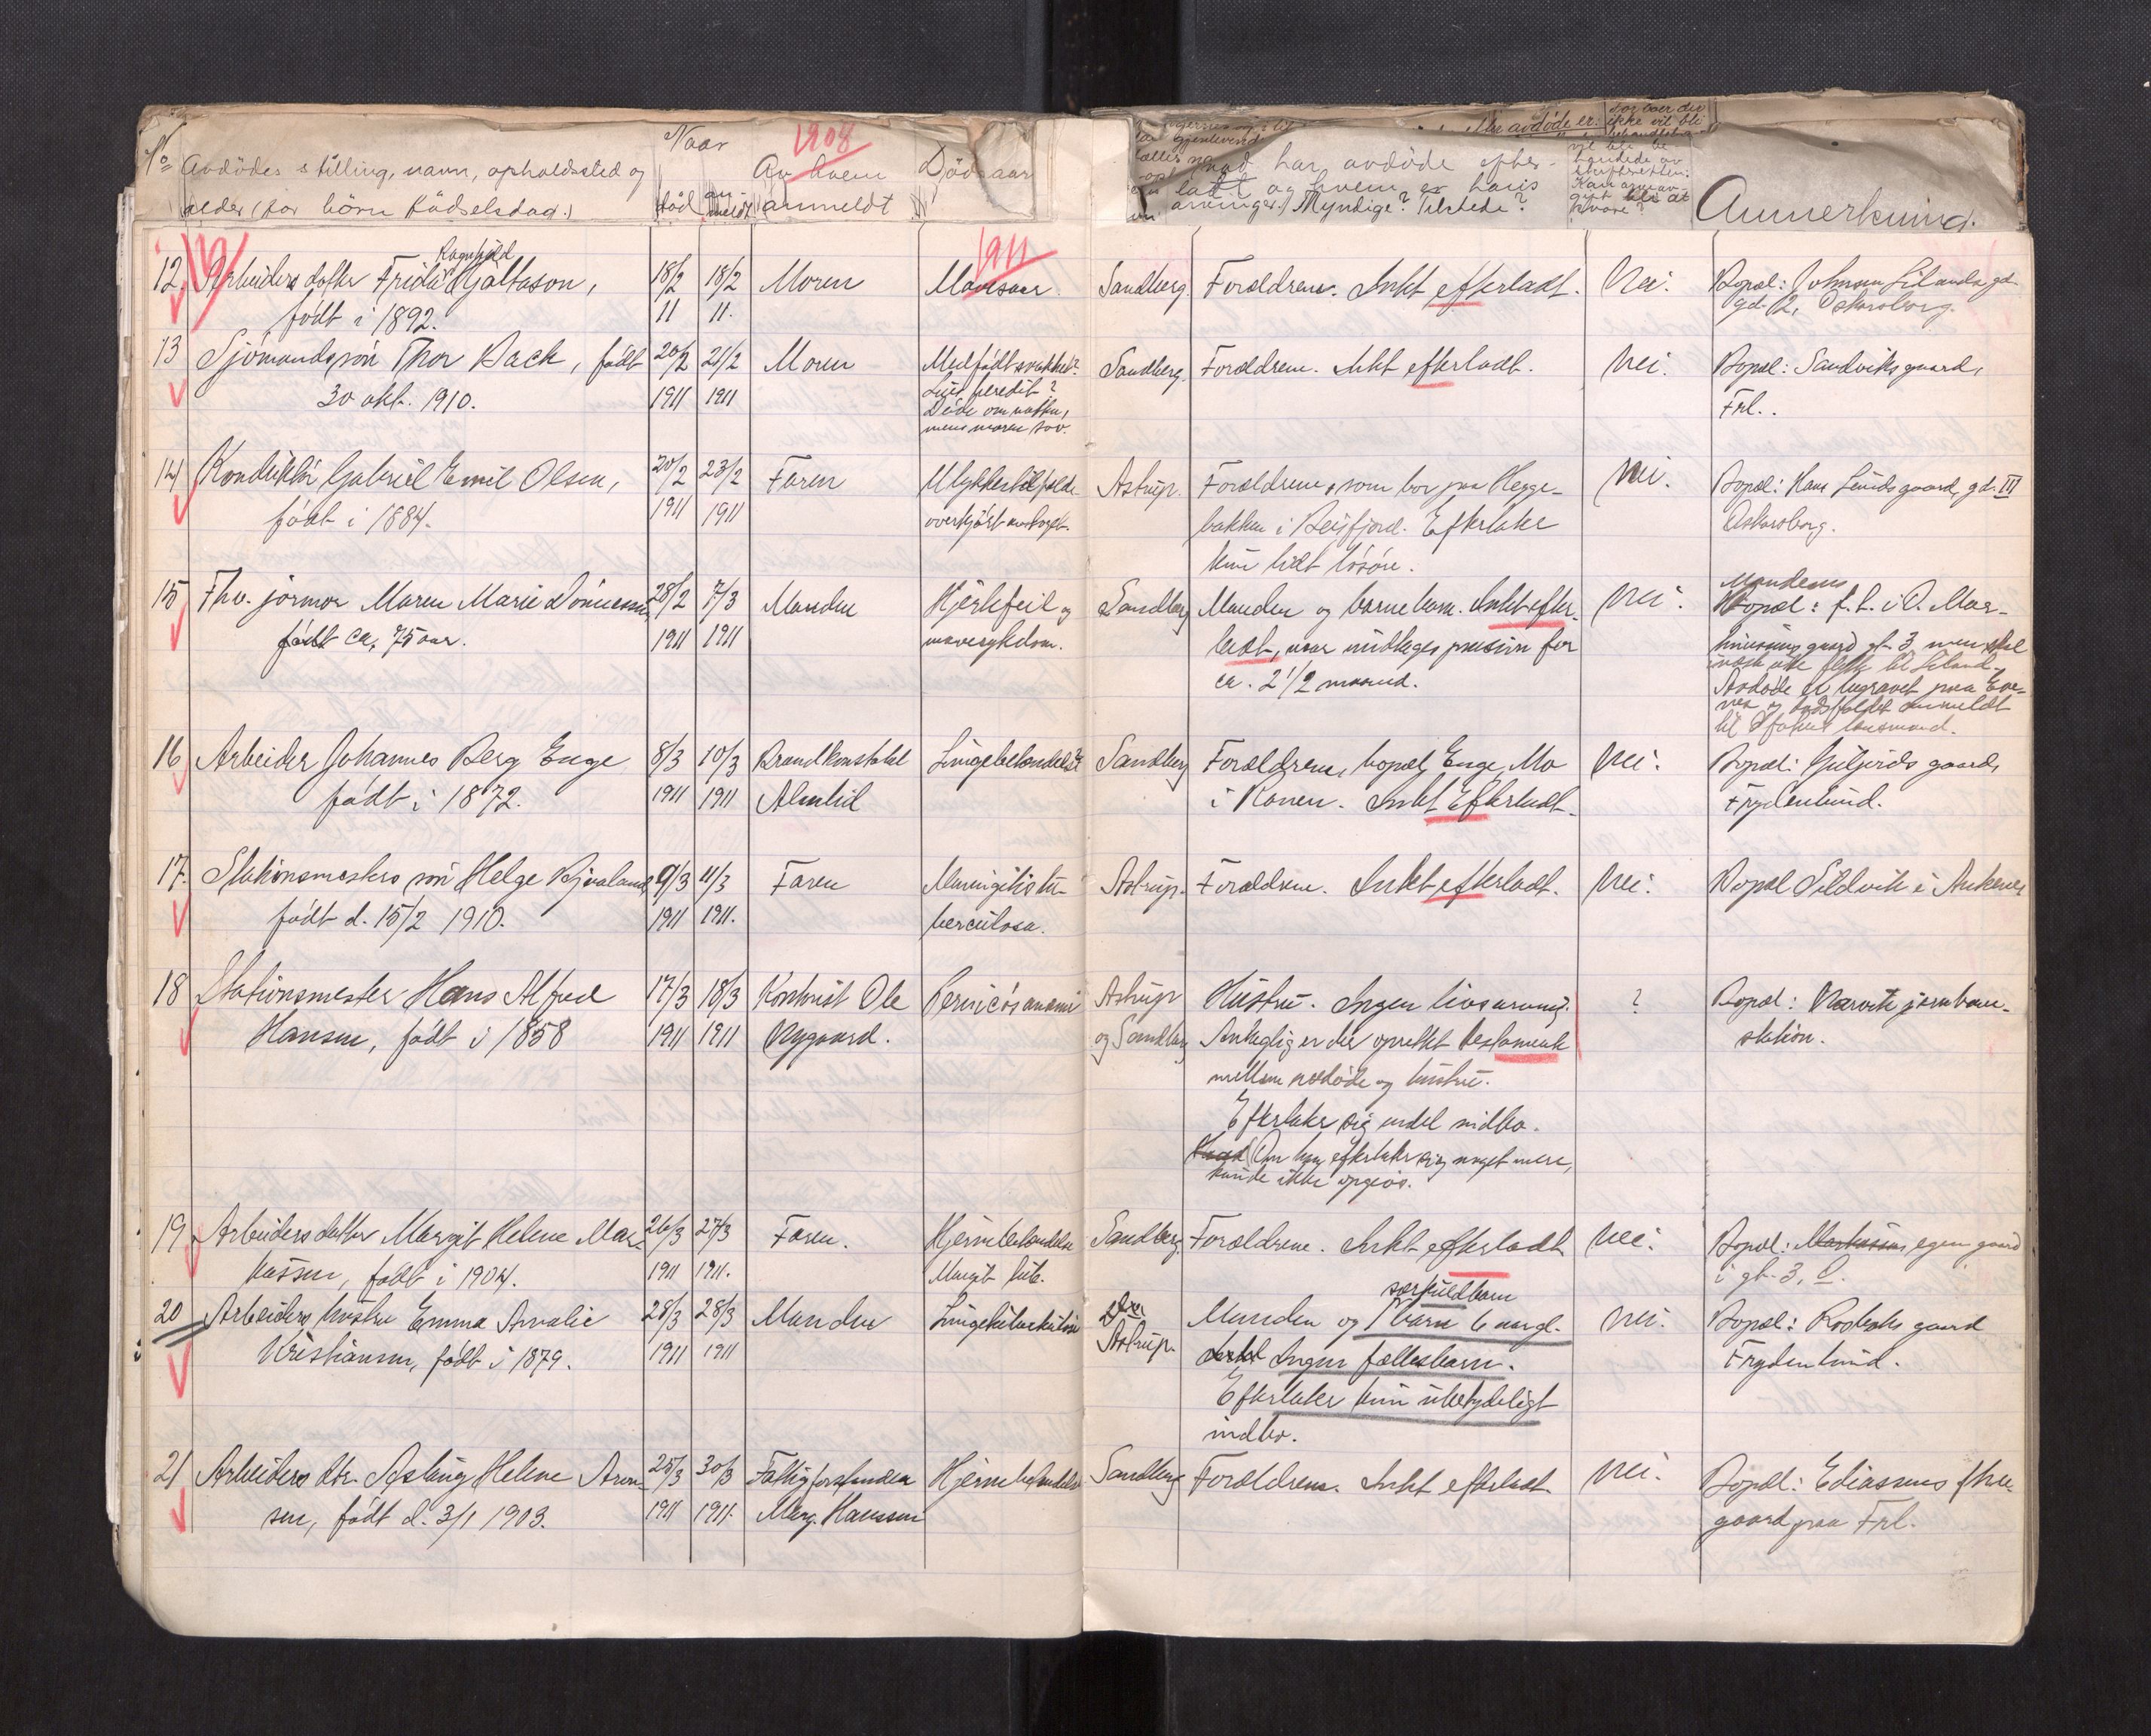 No Avdödes stilling, navn, opholdssted og
alder (for börn födselsdag.)
Naar
död an-
meldt
1908
Av hvem
anmeldt
Dödsaar
Me avdöde er:
hvad har avdöde efter-
latt og hvem er hans
arvinger? Myndige? Tilstede?
Anmerkning.
1911
12. Arbeiders datter Frida Ragnhild Hjaltason,
födt i 1892.
18/2 18/2
11 11.
Moren
Mavesaar.
Sandberg.
Forældrene. Intet efterladt.
Nei.
Bopæl: Johnsen Lilands gd.
gd. 12, Oskarsborg.
13 Sjömands sön Thor Back, födt
30 okt. 1910.
20/2 21/2
1911 1911
Moren
Medfödt svakhed?
Luet heredit?
Döde om natten,
mens moren sov.
Sandberg.
Forældrene. Intet efterladt.
Nei.
Bopæl: Sandviks gaard,
Frl.
14 Konduktör Gabriel Emil Olsen,
födt i 1884.
20/2 23/2
1911 1911
Faren
Ulykkestilfælde
overkjört av toget.
Astrup.
Forældrene, som bor paa Hegge-
bakken i Beisfjord. Efterlater
kun lidt lösöre.
Nei.
Bopæl: Hans Lunds gaard, gd. III
Oskarsborg.
15 Fhv. jormor Maren Marie Dönnessen,
födt ca. 75 aar.
28/2 7/3
1911 1911
Manden
Hjertefeil og
mavesykdom.
Sandberg
Manden og barnebarn. Intet efter-
ladt, nær midlages pension for
ca. 2 1/2 maaned.
Nei.
Mandens
Bopæl: f. t. i O. Mar-
tinussens gaard gt. 3, men skal
Avdöde er begravet paa Eve-
nes og dödsfaldet anmeldt
til Ofotens lensmand.
16 Arbeider Johannes Berg Enge
födt i 1872.
8/3 10/3
1911 1911
Brandkonstabel
Almlid
Lungebetændelse
Sandberg
Forældrene, bopæl Enge, Mo
i Ranen. Intet Efterladt.
Nei.
Bopæl: Giljords gaard,
Frydenlund.
17. Stationsmesters sön Helge Bjoraland,
födt d. 15/2 1910.
9/3 11/3
1911 1911.
Faren
Meningitis tu-
berculosa.
Astrup.
Forældrene. Intet efterladt.
Nei.
Bopæl Sildvik i Ankenes
18 Stationsmester Hans Alfred
Hansen, födt i 1858
17/3 18/3
1911 1911
Kontorist Ole
Nygaard.
Perniciös anemi
Astrup
og Sandberg
Hustru. Ingen livsarving.
Antagelig er der oprettet testamente
mellem avdöde og hustru.
Efterlater sig endel indbo.
Hvad Om han efterlater sig noget mere,
kunde ikke opgives.
?
Bopæl: Narvik jernbane-
station.
19 Arbeiders datter Margit Helene Mar-
kussen, födt i 1904.
26/3 27/3
1911 1911.
Faren.
Hjernebetændelse
Mengit tub.
Sandberg
Forældrene. Intet efterladt
Nei.
Bopæl: Markussens egen gaard
i gt. 3, O.
20 Arbeiders hustru Emma Amalie
Kristiansen, födt i 1879.
28/3 28/3
1911 1911
Manden
Lungetuberkulose
Astrup.
særkuldbarn
Manden og 1 barn 6 aargl.
Ingen fællesbarn.
Efterlater kun ubetydeligt
indbo.
Nei.
Bopæl: Rosbaks gaard
Frydenlund.
21 Arbeiders dtr. Aslaug Helene Aron-
sen, födt d. 3/1 1903.
25/3 30/3
1911 1911.
Fattigforstander
Marg. Hanssen
Hjernebetændelse
Sandberg
Forældrene. Intet efterladt
Nei.
Bopæl: Eliassens
gaard paa Frl.